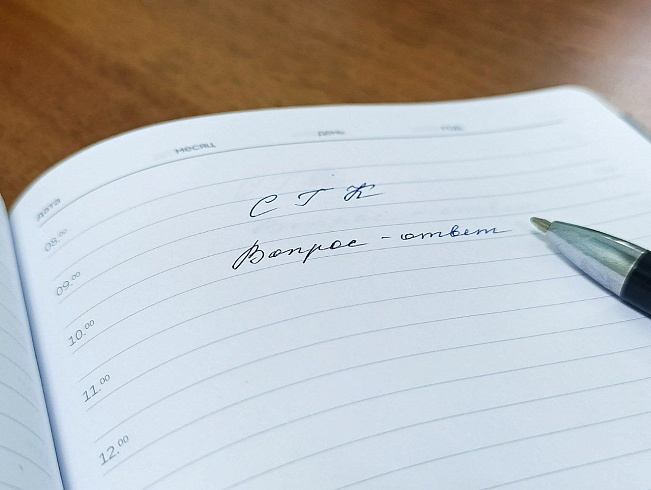 дата месяц день год
08.00
С Г К
09.00
Вопрос - ответ
10.00
11.00
12.00